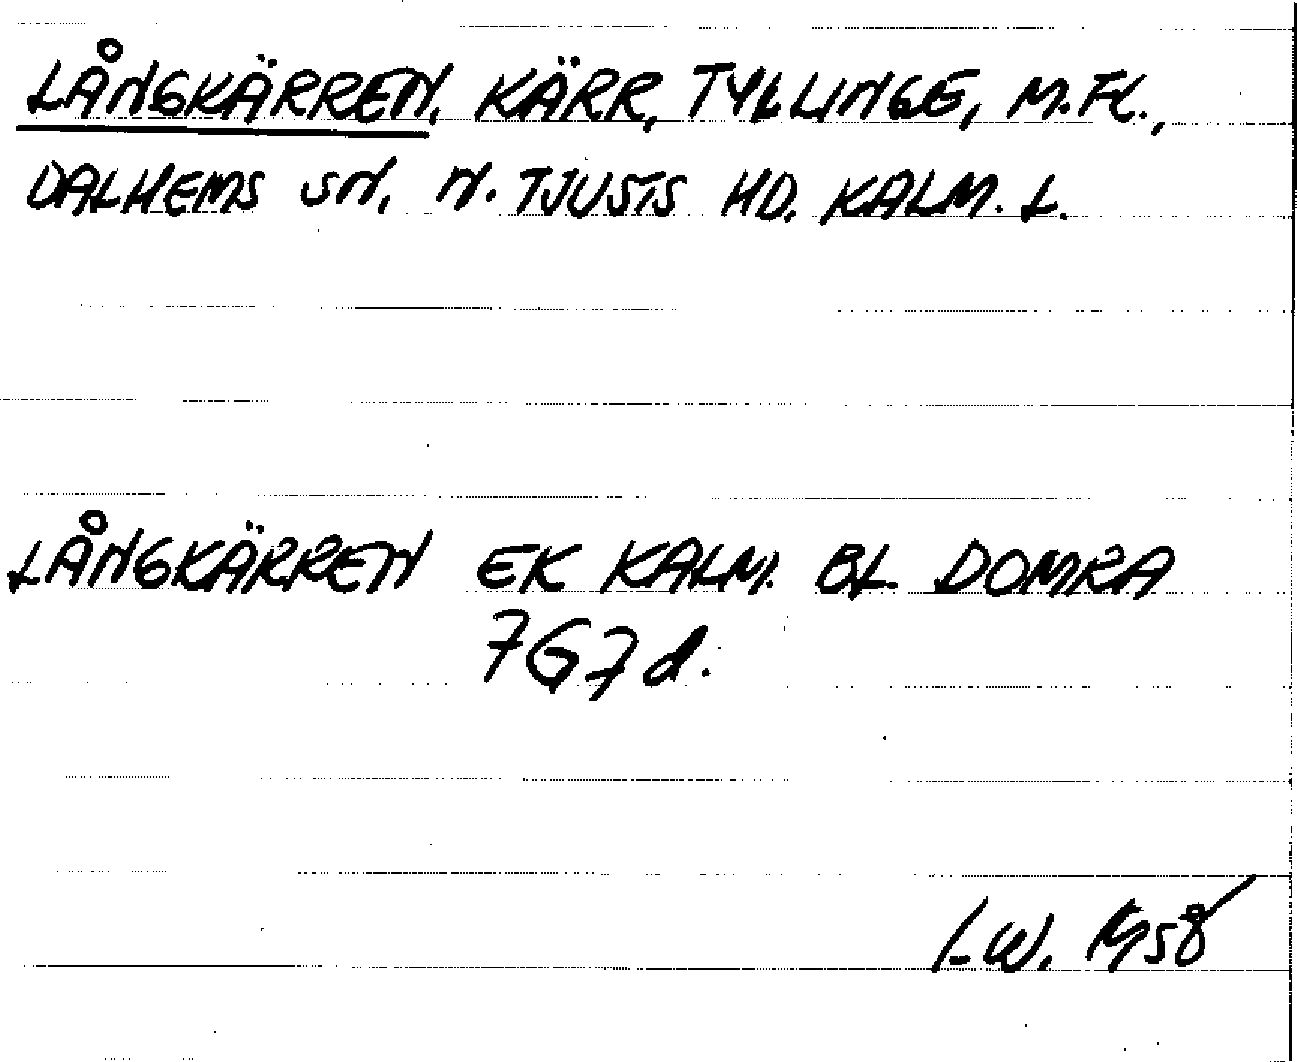 LÅNGKÄRREN, KÄRR, TYLLINGE, M.FL.,
DALHEMS SN, N. TJUSTS HD. KALM. L.
LÅNGKÄRREN EK KALM. BL. DOMRA
7G7d.
I.W. 1958